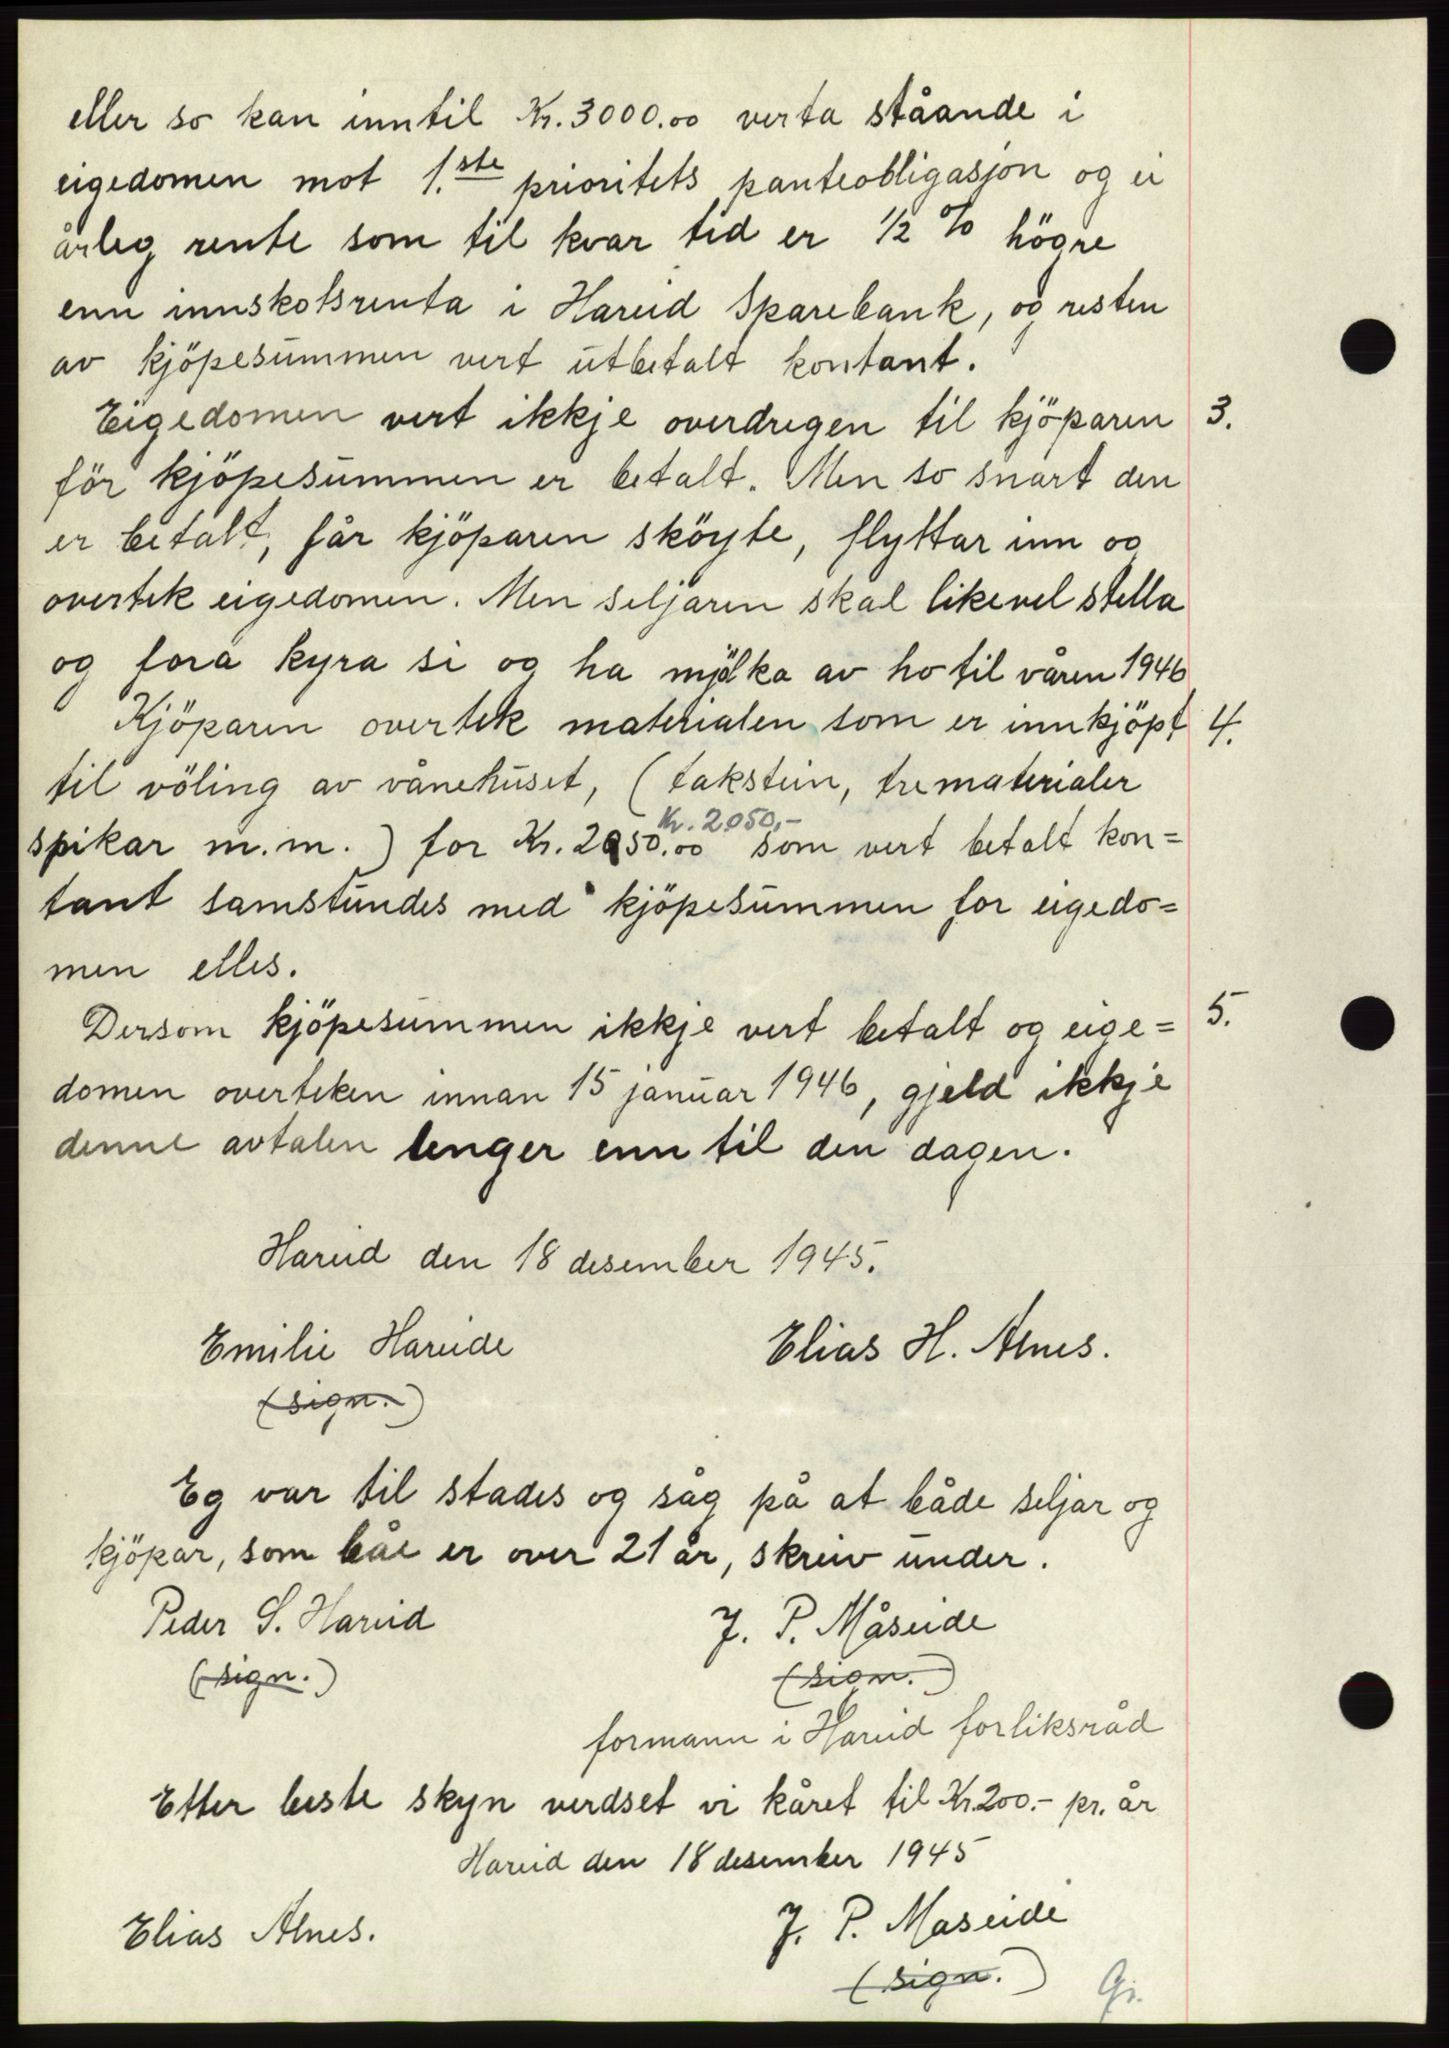 eller so kan inntil Kr. 3000.00 verta ståande i
eigedomen mot 1.ste prioritets panteobligasjon og ei
årleg rente som til kvar tid er 1/2 % högre
enn innskotsrenta i Hareid Sparebank, og resten
av kjöpesummen vert utbetalt kontant.
Eigedomen vert ikkje overdregen til kjöparen 3.
för kjöpesummen er betalt. Men so snart den
er betalt, får kjöparen sköyte, flyttar inn og
overtek eigedomen. Men seljaren skal likevel stella
og fora kyra si og ha mjölka av ho til våren 1946
Kjöparen overtek materialen som er innkjöpt 4.
til völing av vånehuset, (takstein, trematerialer
Kr. 2050,-
spikar m.m.) for Kr. 2050.00 som vert betalt kon=
tant samstundes med kjöpesummen for eigedo=
men elles.
Dersom kjöpesummen ikkje vert betalt og eige= 5.
domen overteken innan 15 januar 1946, gjeld ikkje
denne avtalen lenger enn til den dagen.
Hareid den 18 desember 1945.
Emilie Hareide Elias H. Alnes.
(sign.)
Eg var til stades og såg på at både seljar og
kjöpar, som båe er over 21 år, skreiv under.
Peder S. Hareid J. P. Måseide
(sign.) (sign.)
formann i Hareid forliksråd
Etter beste skyn verdset vi kåret til Kr. 200.- pr. år
Hareid den 18 desember 1945
Elias Alnes. J. P. Maseide
(sign.)